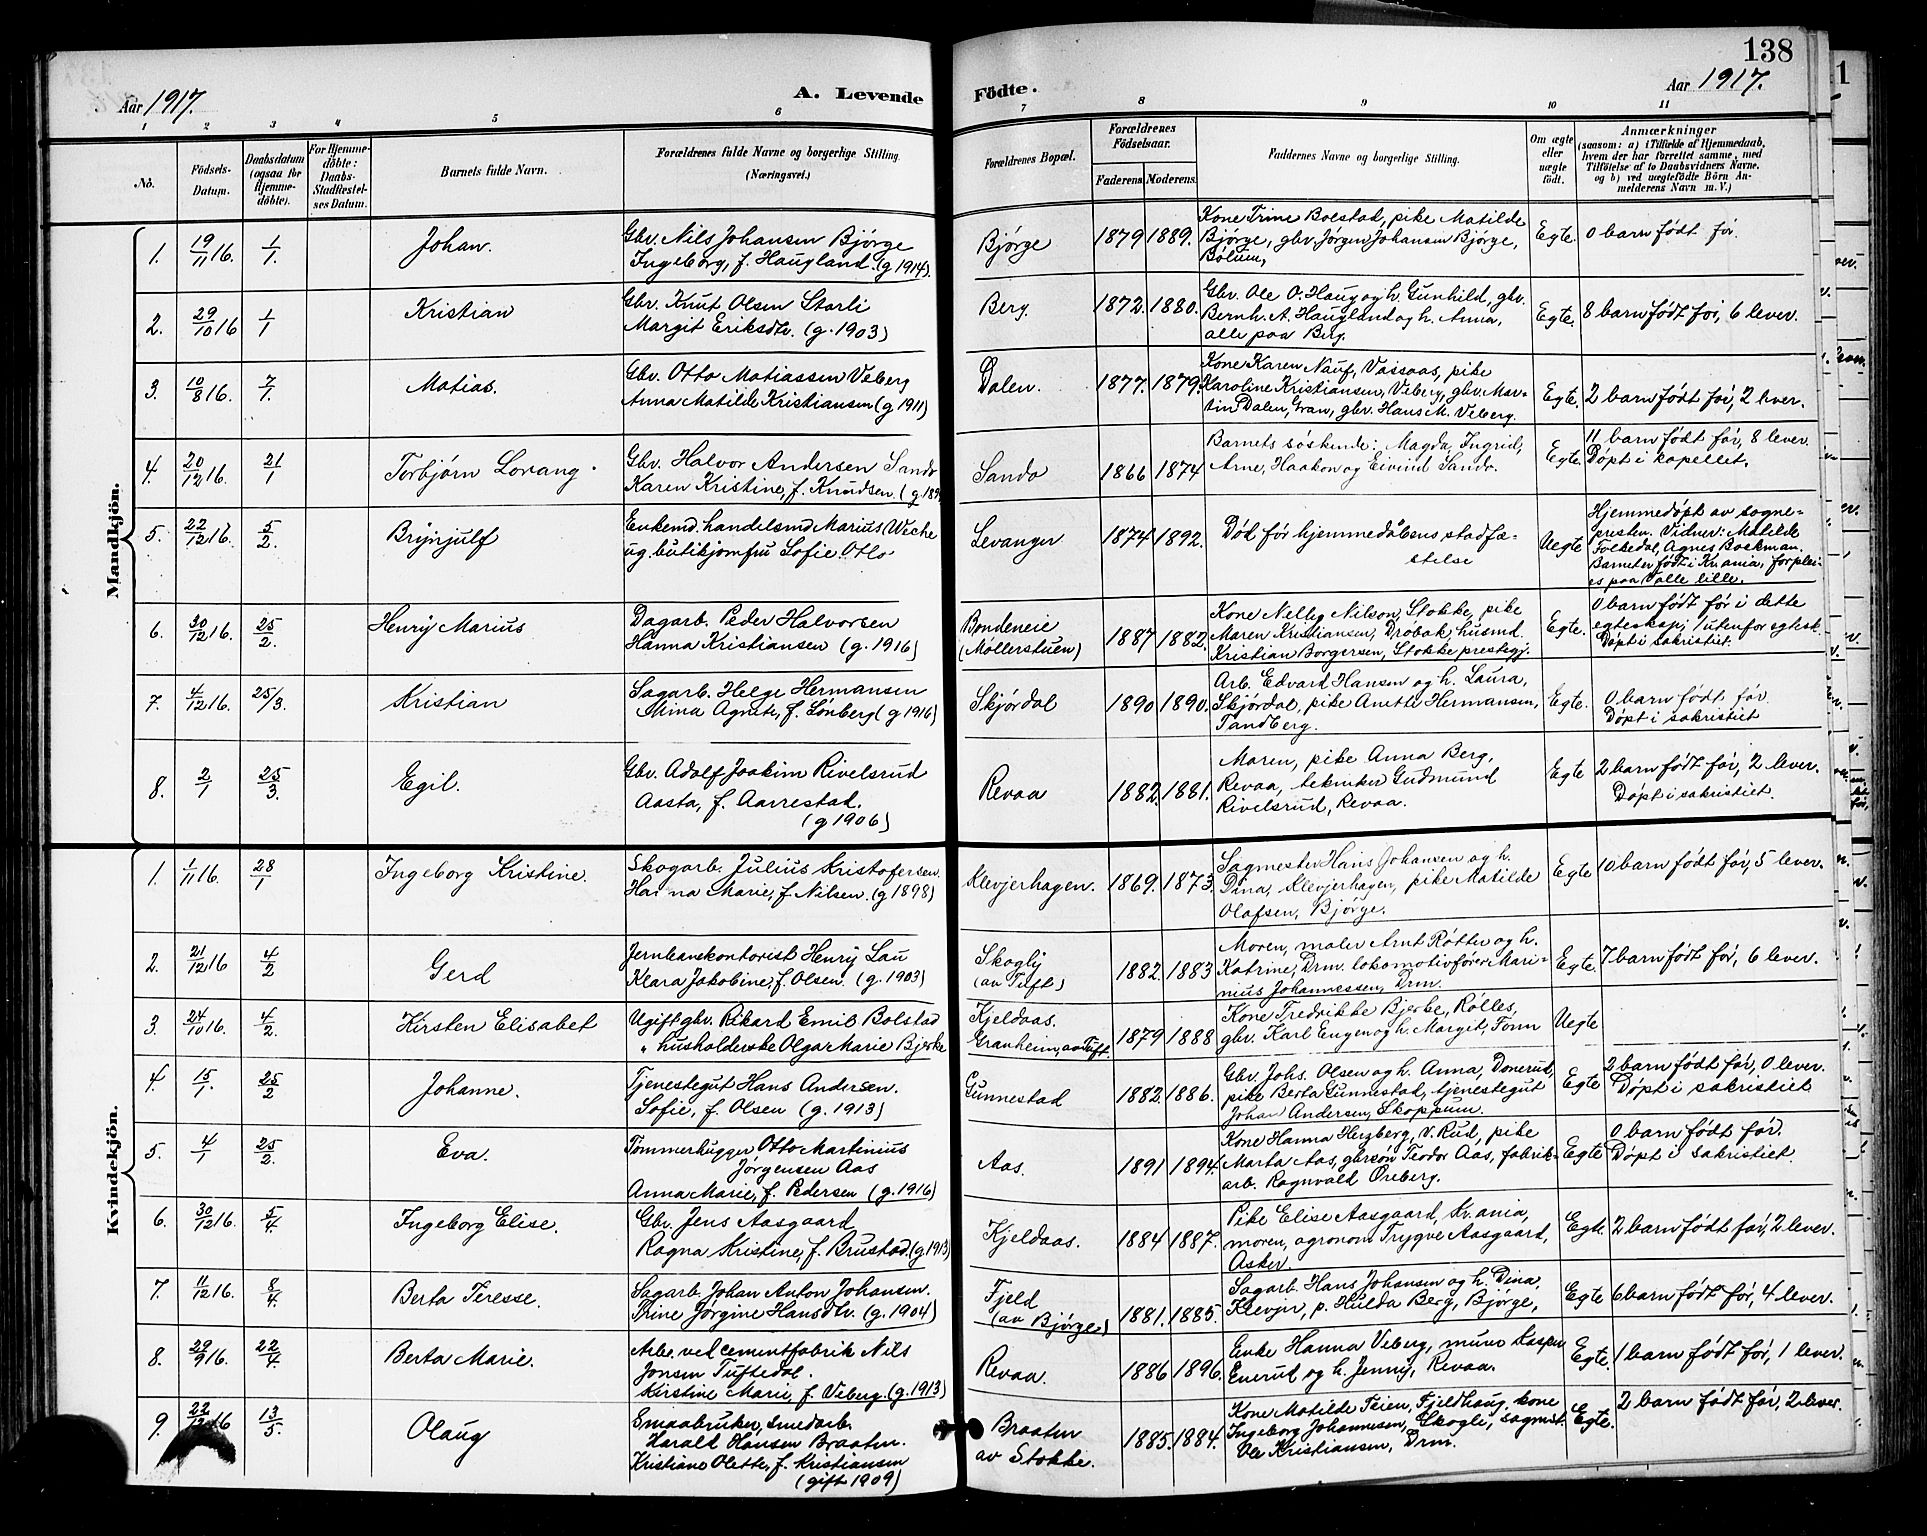 138
Aar 1917.
A. Levende
Födte.
Aar 1917.
1 2 3 4 5 6 7 8 9 10 11
No.
Födsels-
Datum.
Daabsdatum
(ogsaa for
Hjemme-
döbte).
For Hjemme-
döbte:
Daabs-
Stadfæstel-
ses Datum.
Barnets fulde Navn.
Forældrenes fulde Navne og borgerlige Stilling.
(Næringsvei.)
Forældrenes Bopæl.
Forældrenes
Födselsaar.
Faderens. Moderens.
Faddernes Navne og borgerlige Stilling.
Om ægte
eller
uægte
født.
Anmærkninger
(saasom: a) i Tilfælde af Hjemmedaab,
hvem der har forrettet samme, med
Tilföielse af to Daabsvidners Navne.
og b) ved uægtefödte Börn An-
melderens Navn m. V.)
Mandkjön.
1. 19/11 16. 1/1. Johan.
Gbr. Nils Johansen Bjørge
Ingeborg, f. Haugland. (g 1914).
Bjørge 1879 1889.
Kone Trine Bolstad, pike Matilde
Bjørge, gbr. Jørgen Johansen Bjørge,
Egte. 0 barn født før.
2. 29/10 16 1/1 Kristian
Gbr. Knut Olsen Starli
Margit Eriksdtr. (g. 1903)
Berg. 1872. 1880.
Gbr. Ole O. Haug og h. Gunhild, gbr.
Bernh. A. Haugland og h. Anna,
alle paa Berg.
Egte. 8 barn født før, 6 lever.
3. 10/8 16. 7/1. Matias.
Gbr. Otto Matiassen Veberg
Anna Matilde Kristiansen (g 1911)
Dalen. 1877. 1879.
Kone Karen Nauf, Vassaas, pike
Karoline Kristiansen, Veberg, gbr. Mar-
tin Dalen, Gran, gbr. Hans M. Veberg.
Egte. 2 barn født før, 2 lever.
4. 20/12 16. 21/1 Torbjørn Lorang.
Gbr. Halvor Andersen Sando
Karen Kristine, f. Knudsen. (g 189
Sando 1866 1874
Barnets søskende: Magda, Ingrid,
Arne, Haakon og Eivind Sando.
Egte. 11 barn født før, 8 lever.
Døpt i kapellet.
5. 22/12 16. 5/2. Brynjulf
Enkemd. handelsmd Marius Weche
ug. butikjomfru Sofie Otto
Levanger 1874 1892.
Død før hjemmedåbens stadfæ-
stelse
Uegte
Hjemmedøpt av sogne-
presten. Vidner: Matilde
Folkedal, Agnes Backman.
Barnet er født i Kr.ania, forplei-
es paa Valle lille.
6. 30/12 16. 25/2. Henry Marius
Dagarb. Peder Halvorsen
Hanna Kristiansen (g. 1916)
Bondeneie
(Møllerstuen) 1887 1882.
Kone Nelly Nilson, Stokke, pike
Maren Kristiansen, Drøbak, husmd.
Kristian Borgersen, Stokke prestegj.
Egte. 0 barn født før i dette
egteskap; 1 utenfor egtesk.
Døpt i sakristiet.
7. 4/12 16. 25/3. Kristian
Sagarb. Helge Hermansen
Mina Agnete, f. Lønberg (g 1916)
Skjørdal 1890 1890.
Arb. Edvard Hansen og h. Laura,
Skjørdal, pike Anette Hermansen,
Tandberg.
Egte. 0 barn født før.
Døpt i sakristiet
8. 2/1 25/3. Egil.
Gbr. Adolf Joakim Rivelsrud
Aasta, f. Aarrestad.
(g 1906)
Revaa 1882. 1881.
Moren, pike Anna Berg,
Revaa, tekniker Gudmund
Rivelsrud, Revaa.
Egte 2 barn født før, 2 lever.
Døpt i sakristiet.
Kvindekjön.
1. 1/11 16. 28/1 Ingeborg Kristine.
Skogarb. Julius Kristofersen.
Hanna Marie, f. Nilsen. (g 1898)
Klevjerhagen. 1869. 1873.
Sagmester Hans Johansen og h.
Dina, Klevjerhagen, pike Matilde
Olafsen, Bjørge.
Egte 10 barn født før, 5 lever.
2. 21/12 16 4/2 Gerd
Jernbanekontorist Henry Lau
Klara Jakobine, f. Olsen. (g. 1903)
Skogly
(av Tuft) 1882. 1883
Moren, maler Arnt Røtter og h.
Katrine, Drm. lokomotivfører Mari-
nius Johannessen, Drm.
Egte. 7 barn født før, 6 lever.
3. 24/10 16. 4/2. Kirsten Elisabet
Ugift gbr. Rikard Emil Bolstad
" husholderske Olga Marie Bjerke
Kjeldaas.
Granheim, av Tuft. 1879 1888
Kone Fredrikke Bjerke, Rølles,
gbr. Karl Eugen og h. Margit, Tonn
Uegte
4. 15/1. 25/2 Johanne.
Tjenestegut Hans Andersen.
Sofie, f. Olsen (g. 1913)
Gunnestad 1882. 1886.
Gbr. Johs. Olsen og h. Anna, Donerud,
pike Berta Gunnestad, tjenestegut
Johan Andersen, Skoppum.
Egte 2 barn født før, 0 lever.
Døpt i sakristiet
5. 4/1 25/2. Eva.
Tømmerhugger Otto Martinius
Jørgensen Aas
Anna Marie, f. Pedersen (g. 1916)
Aas. 1891 1894.
Kone Hanna Herzberg, v. Rud, pike
Marta Aas, gbrsøn Teodor Aas, fabrik-
arb. Ragnvald Øreberg.
Egte 0 barn født før.
Døpt i sakristiet.
6. 30/12 16. 5/4. Ingeborg Elise.
Gbr. Jens Aasgaard
Ragna Kristine, f. Brustad. (g. 1913)
Kjeldaas. 1884 1887.
Pike Elise Aasgaard, Kr.ania,
moren, agronom Trygve Aasgaard,
Asker.
Egte. 2 barn født før, 2 lever.
7. 11/12 16. 8/4. Berta Teresse.
Sagarb. Johan Anton Johansen.
Trine Jørgine Hansdtr. (g. 1904)
Fjeld
(av Bjørge) 1881. 1885.
Sagarb. Hans Johansen og h. Dina,
Klevjer, p. Hulda Berg, Bjørge,
Egte 6 barn født før, 4 lever.
8. 29/9 16. 22/4. Berta Marie.
Arb. ved cementfabrik Nils
Jonsen Tuftedal.
Kirstine Marie, f. Veberg. (g. 1913)
Revaa. 1886 1896.
Enke Hanna Veberg, murer Kasper
Enerud og h. Jenny, Revaa.
Egte. 1 barn født før, 1 lever.
9. 22/12 16 13/5. Olaug
Smaabruker, smedarb.
Harald Hansen Braaten.
Kristiane Olette, f. Kristiansen
(gift 1909)
Braaten
av Stokke. 1885. 1884.
Kone Matilde Teien, Fjeldhaug, kone
Ingeborg Johannesen, Skogli, sagmst.
Ole Kristiansen, Drm.
Egte. 2 barn født før, 2 lever.